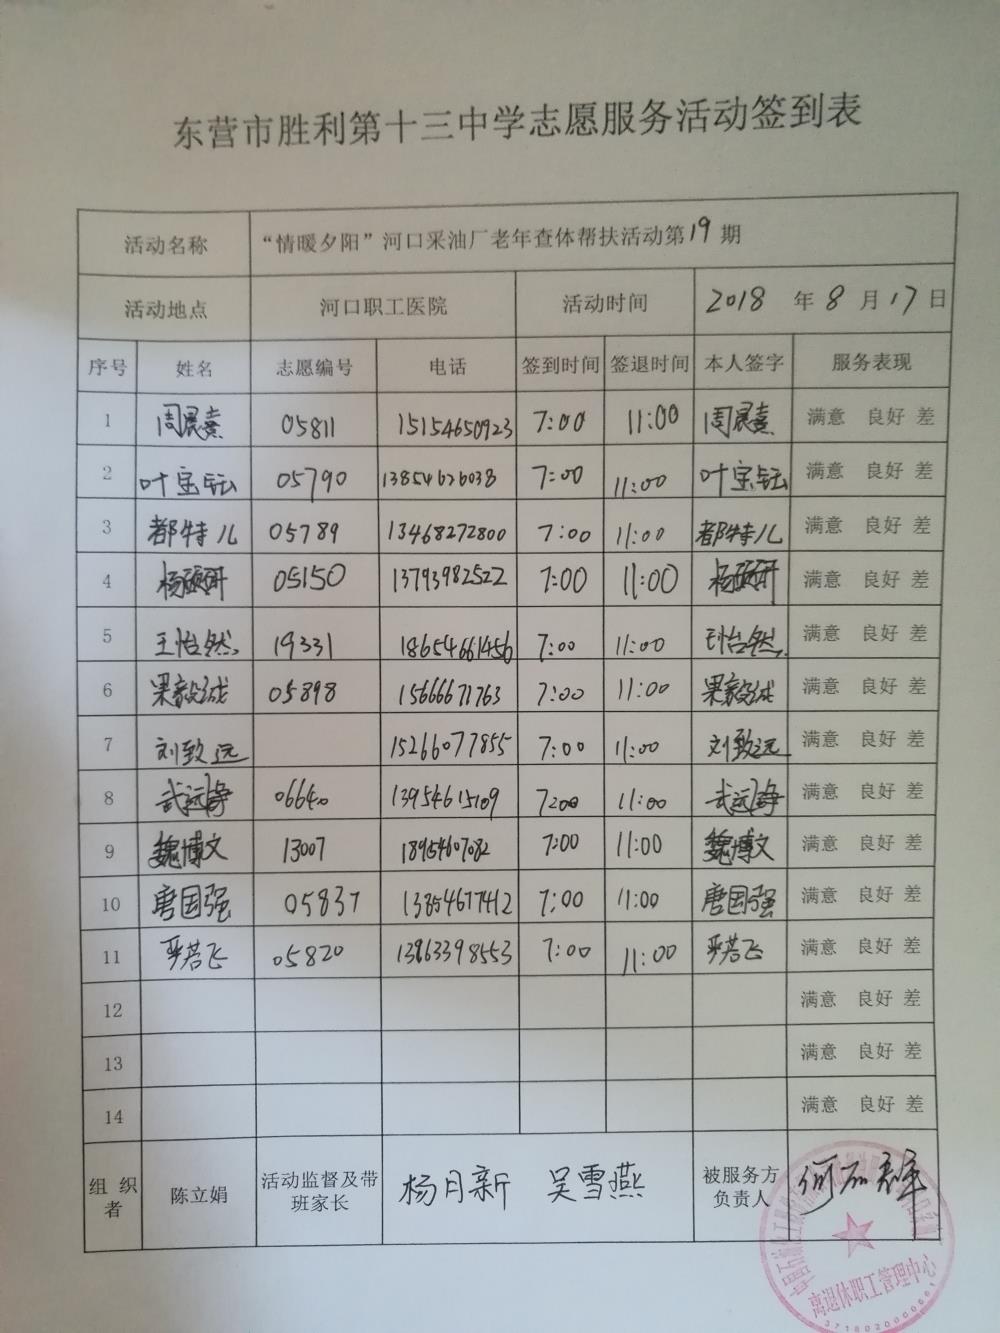 东营市胜利第十三中学志愿服务活动签到表
活动名称 “情暖夕阳”河口采油厂老年查体帮扶活动第19期
活动地点 河口职工医院 活动时间 2018 年 8 月 17 日
序号 姓名 志愿编号 电话 签到时间 签退时间 本人签字 服务表现
1 周晨熹 05811 15154650923 7:00 11:00 周晨熹 满意 良好 差
2 叶宝钰 05790 13854626038 7:00 11:00 叶宝钰 满意 良好 差
3 都特儿 05789 13468272800 7:00 11:00 都特儿 满意 良好 差
4 杨硕研 05150 13793982522 7:00 11:00 杨硕研 满意 良好 差
5 王怡然 19331 18654661456 7:00 11:00 王怡然 满意 良好 差
6 果毅城 05898 15666671763 7:00 11:00 果毅城 满意 良好 差
7 刘致远 15266077855 7:00 11:00 刘致远 满意 良好 差
8 武远铮 06640 13954615109 7:00 11:00 武远铮 满意 良好 差
9 魏博文 13007 18954607082 7:00 11:00 魏博文 满意 良好 差
10 唐国强 05837 13854677412 7:00 11:00 唐国强 满意 良好 差
11 严若飞 05820 13963398553 7:00 11:00 严若飞 满意 良好 差
12 满意 良好 差
13 满意 良好 差
14 满意 良好 差
组 织 者 陈立娟 活动监督及带班家长 杨月新 吴雪燕 被服务方负责人
离退休职工管理中心